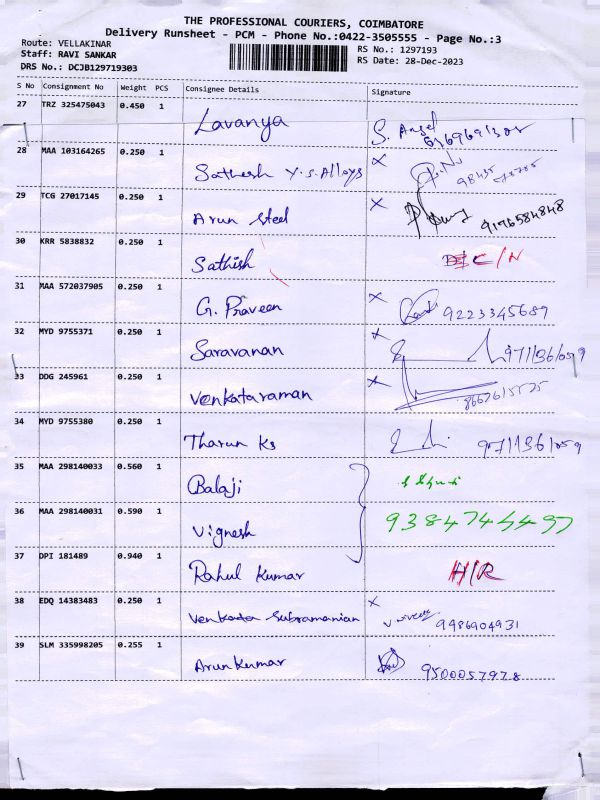 THE PROFESSIONAL COURIERS, COIMBATORE
Delivery Runsheet - PCM - Phone No.:0422-3505555 - Page No.:3
Route: VELLAKINAR
RS No.: 1297193
Staff: RAVI SANKAR
RS Date: 28-Dec-2023
DRS No.: DCJB129719303
S No Consignment No Weight PCS Consignee Details Signature
27 TRZ 325475043 0.450 1 Lavanya S. Angel
28 MAA 103164265 0.250 1 Sathesh Y.S. Alloys X
29 TCG 27017145 0.250 1 Arun Steel X 9176584848
30 KRR 5838832 0.250 1 Sathish C/N
31 MAA 572037905 0.250 1 G. Praveen X 9223345689
32 MYD 9755371 0.250 1 Saravanan X
33 DDG 245961 0.250 1 Venkataraman X
34 MYD 9755380 0.250 1 Tharun Ks
35 MAA 298140033 0.560 1 Balaji
36 MAA 298140031 0.590 1 Vignesh 9384744497
37 DPI 181489 0.940 1 Rahul Kumar H/R
38 EDQ 14383483 0.250 1 Venkata Subramanian X 9486904931
39 SLM 335998205 0.255 1 Arun Kumar 9500057978